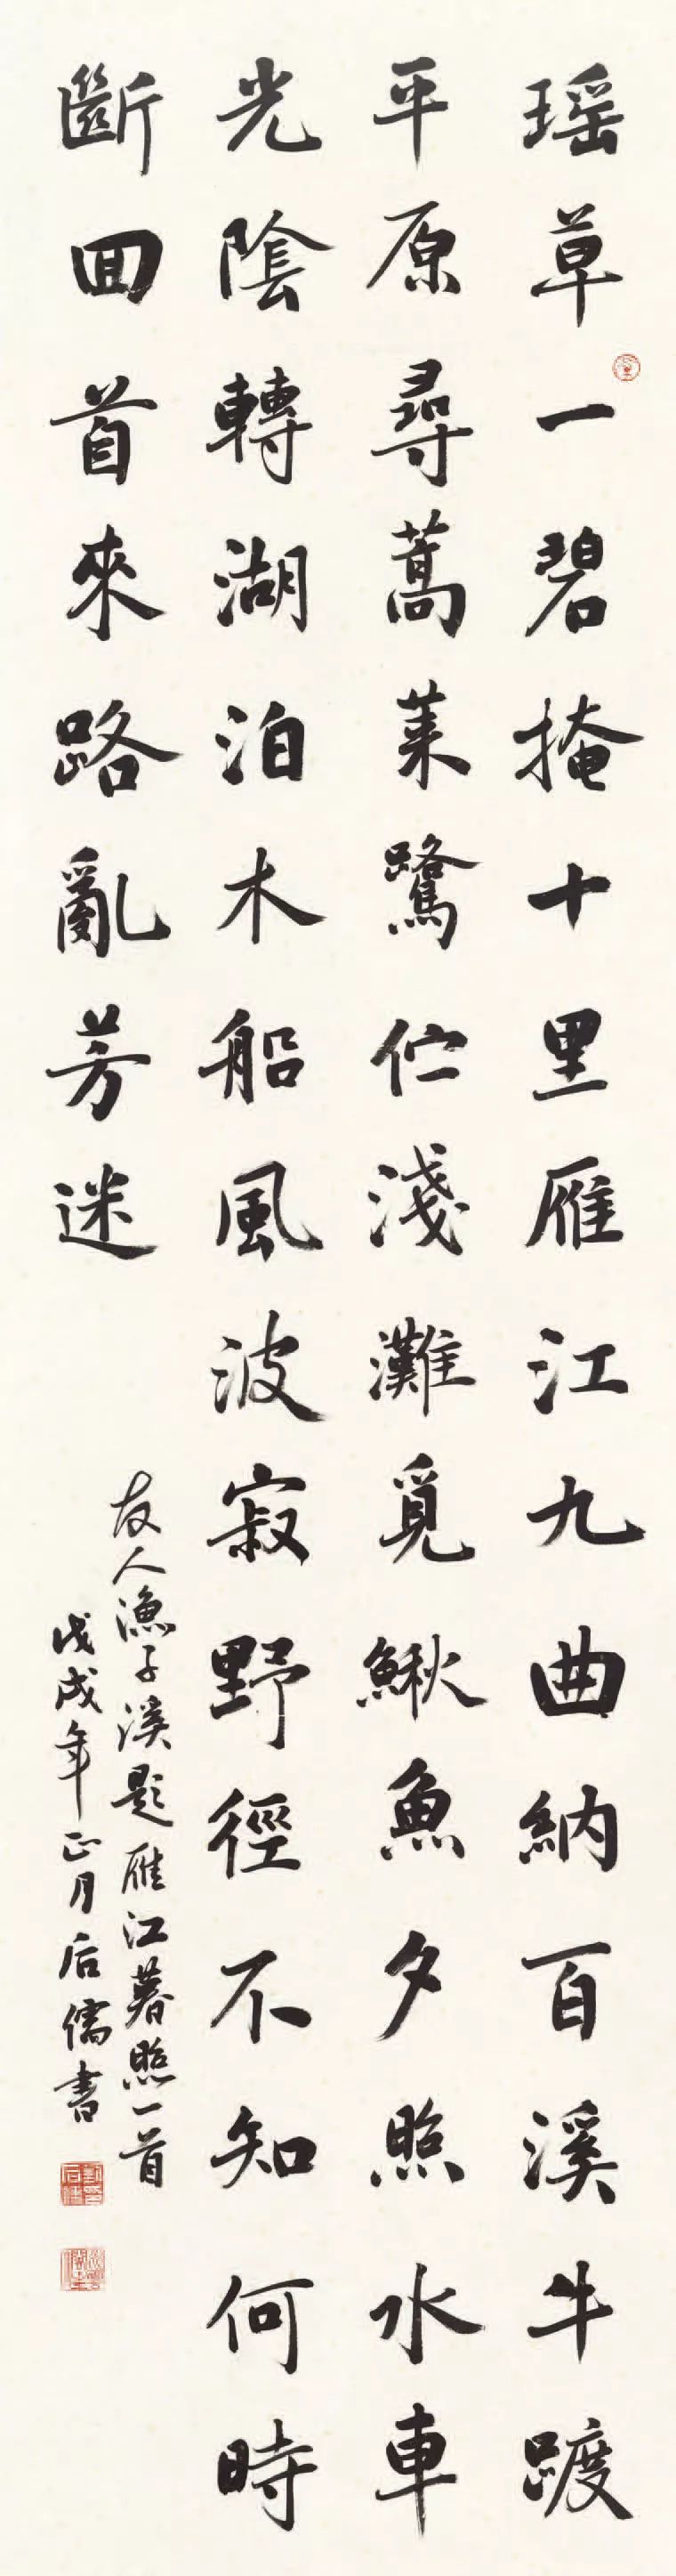 瑶草一碧掩十里雁江九曲納百溪牛踱
平原尋蒿萊鷺伫淺灘覓鰍魚夕照水車
光陰轉湖泊木船風波寂野徑不知何時
斷回首來路亂芳迷
友人漁子溪題雁江暮照一首
戊戌年正月后儒書